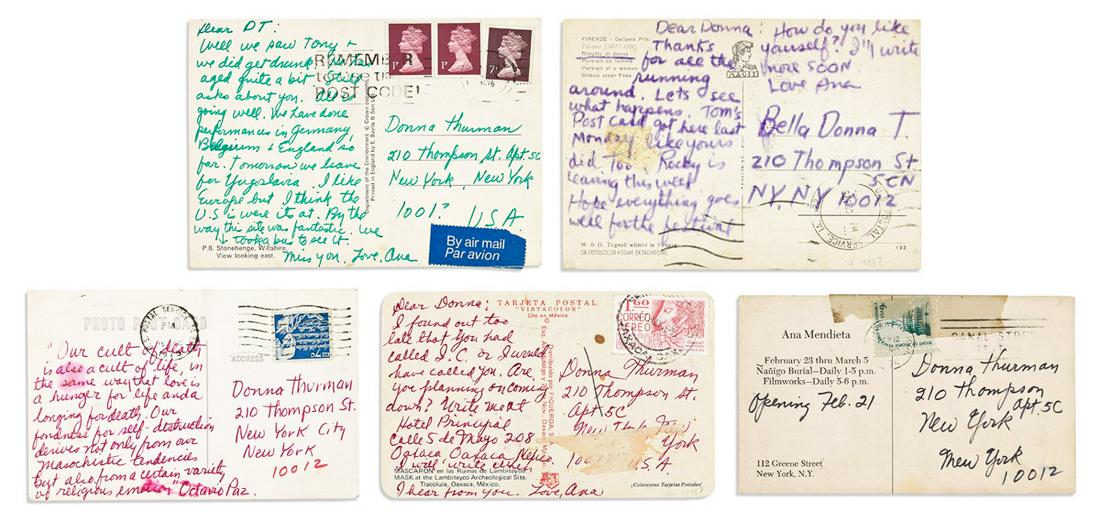 Dear DT:
Well we saw Tony +
we did get drunk. What
aged quite a bit
asks about you. All is
going well. We have done
performances in Germany,
Belgium + England so
far. Tomorrow we leave
for Yugoslavia. I like
Europe but I think the
U.S is were its at. By the
way this site was fantastic. We
took a bus to see it.
Miss you. Love, Ana
P.B. Stonehenge, Wiltshire.
View looking east.
Department of the Environment © Crown copyright
Printed in England by E. Bavis & Son Ltd
REMEMBER
to use the
POST CODE!
1P
1P
7P
Donna Thurman
210 Thompson St. Apt. 5C
New York, New York
1001? USA
By air mail
Par avion
FIRENZE - Galleria
Ritratto di donna
Portrait de femme
Portrait of a woman
Dear Donna:
Thanks
for all the
running
around. Lets see
what happens. Tom's
Post Card got here last
Monday like yours
did Too. Rocky is
leaving this week
Hope everything goes
well for the festival
How do you like
yourself?! I'll write
more SOON.
Love Ana
Bella Donna T.
210 Thompson St
5CN
NY, NY 10012
POSTAL SERVICE
PHOTO POST CARD
POSTAL SERVICE
PM
ADDRESS
"Our cult of death
is also a cult of life, in
the same way that love is
a hunger for life and a
longing for death. Our
fondness for self-destruction
derives not only from our
masochistic tendencies
but also from a certain variety
of religious emotion" Octavio Paz.
Donna Thurman
210 Thompson St.
New York City
New York
10012
TARJETA POSTAL
"VISTACOLOR"
Lito en México
Dear Donna:
I found out too
late that you had
called I.C. or I would
have called you. Are
you planning on coming
down? Write me at
Hotel Principal
Calle 5 de Mayo 208
Oaxaca, Oaxaca Mexico
I will write when
I hear from you. Love, Ana
MASCARON en las Ruinas de Lambityeco
MASK at the Lambityeco Archeological Site.
Tlacolula, Oaxaca, México.
1.60
CORREO
OAXACA
Donna Thurman
210 Thompson St.
Apt 5C
New York
U.S.A.
¡Coleccione Tarjetas Postales!
Ana Mendieta
February 23 thru March 5
Nañigo Burial—Daily 1-5 p.m.
Filmworks—Daily 5-6 p.m.
Opening Feb. 21
112 Greene Street
New York, N.Y.
CANAL STREET
Donna Thurman
210 Thompson St
Apt 5C
New York
New York
10012